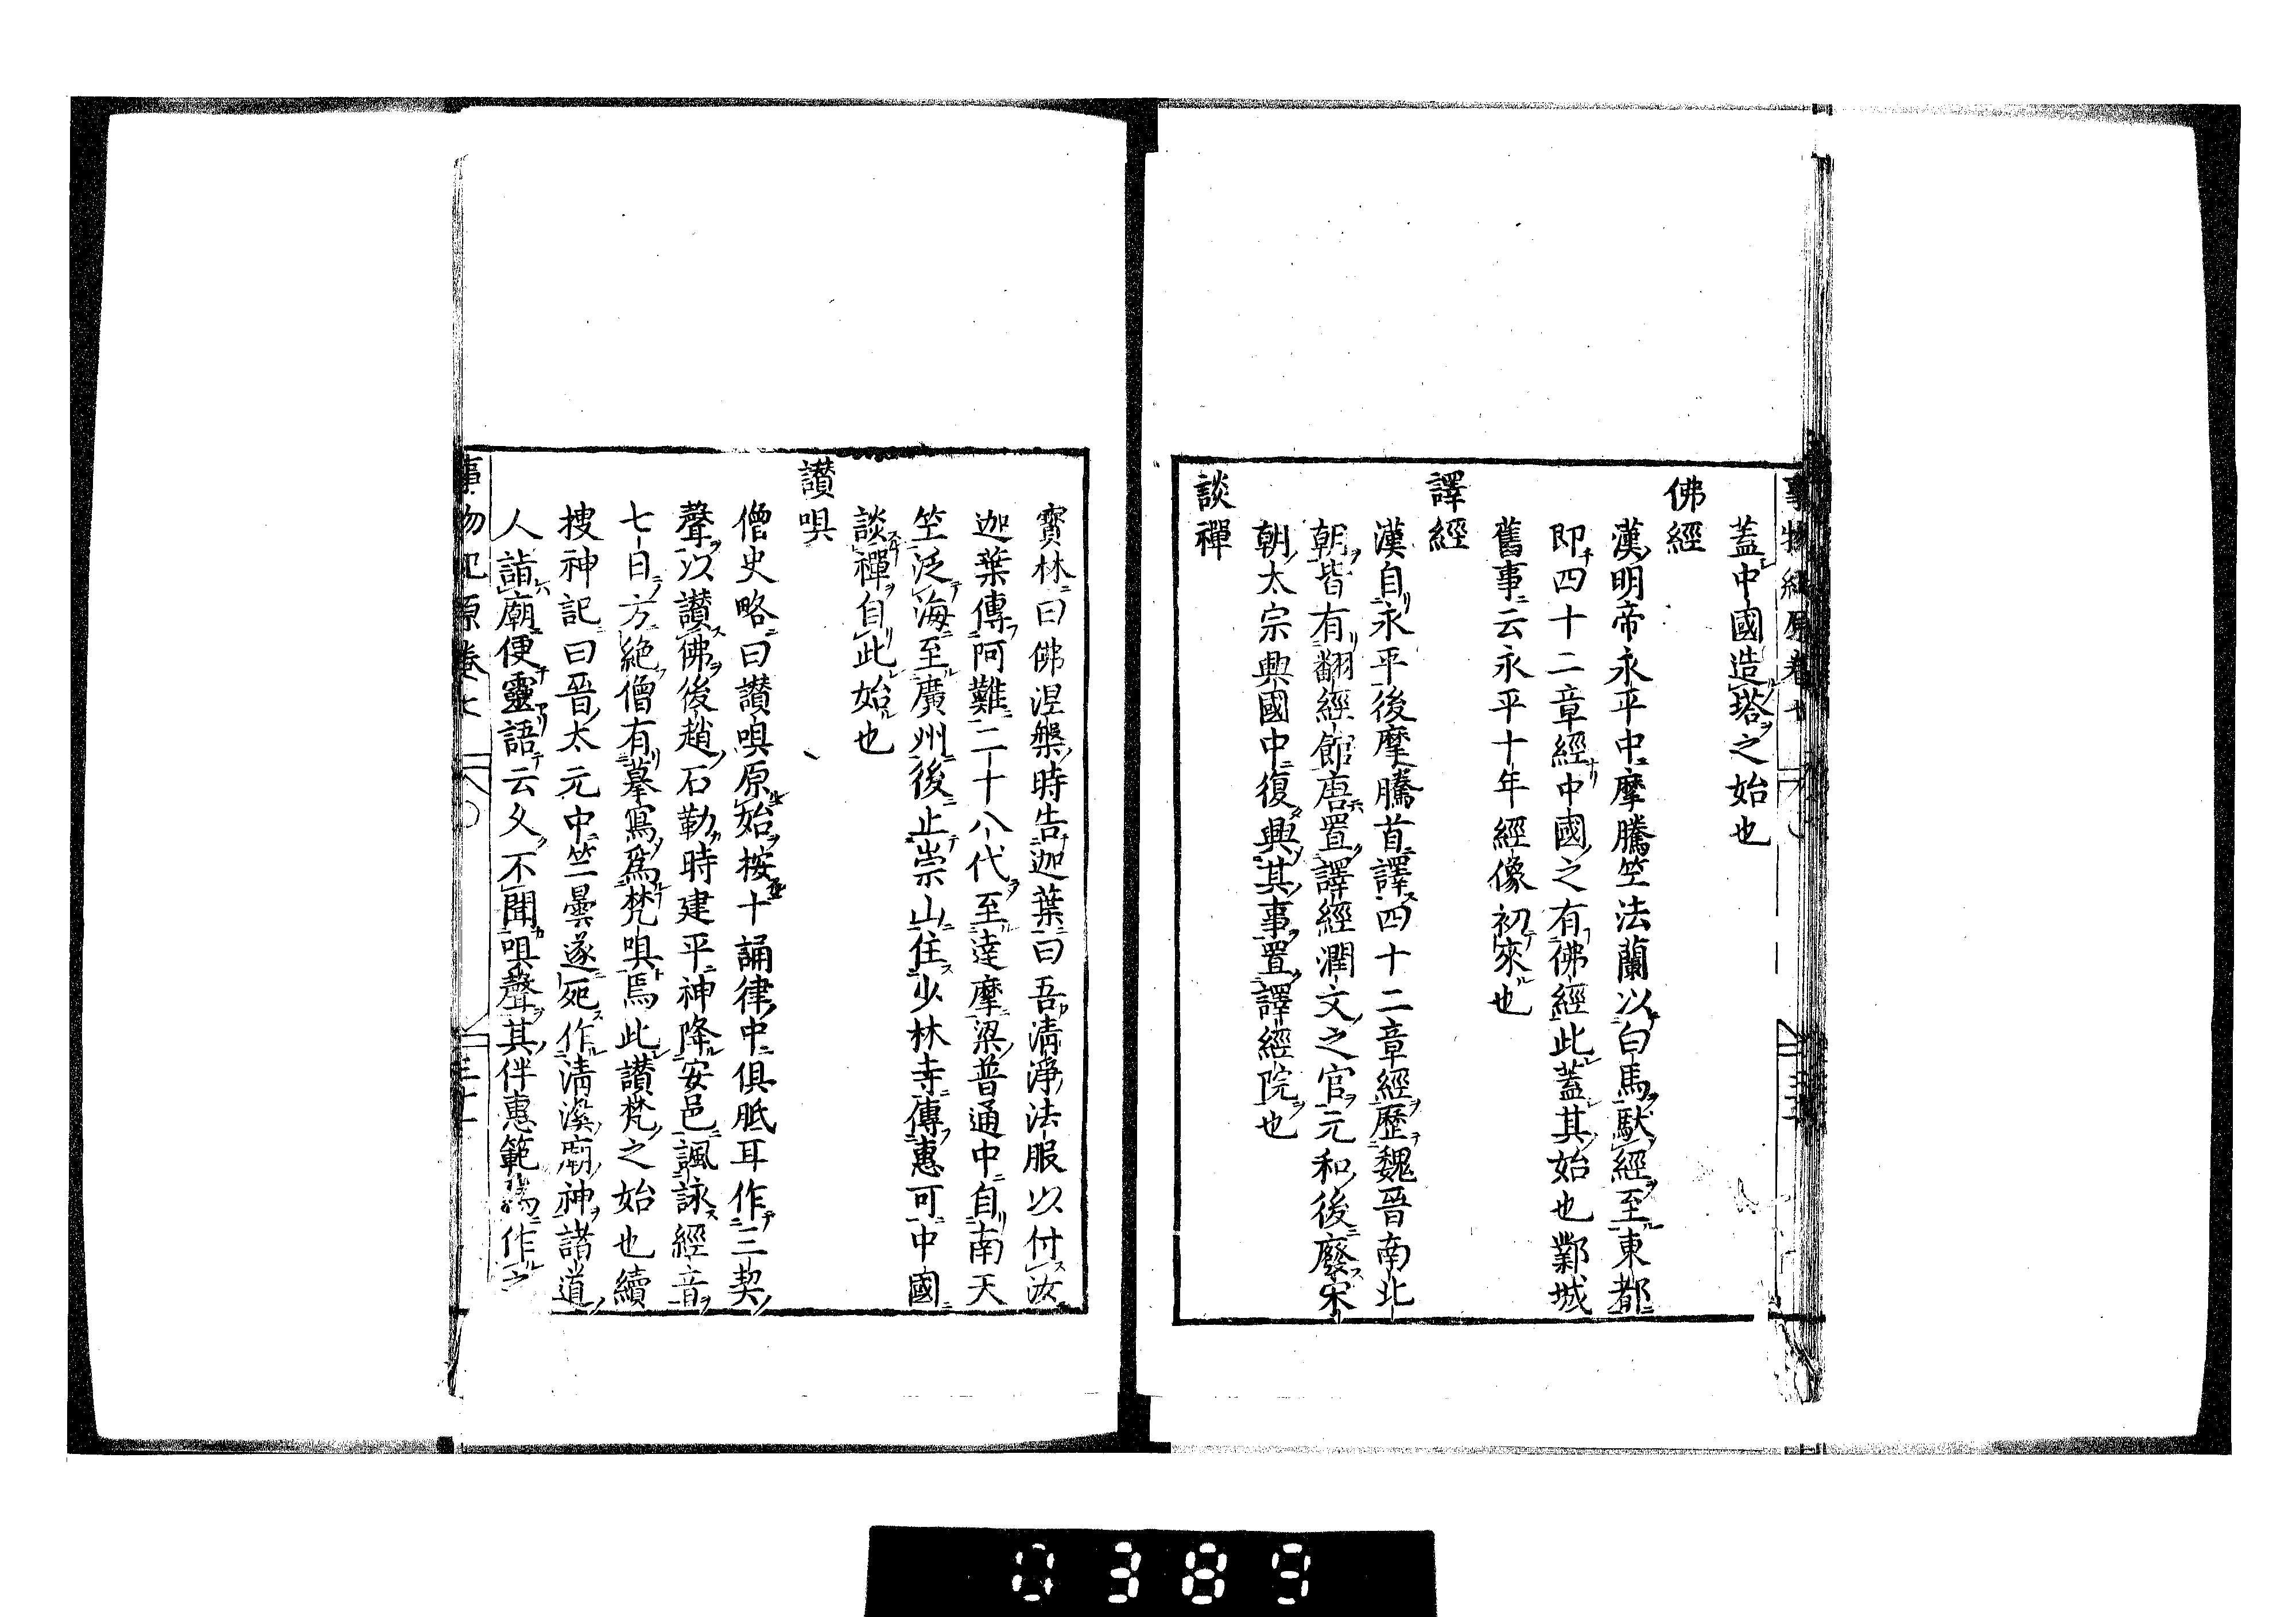 蓋中國造塔之始也
佛經
漢明帝永平中摩騰竺法蘭以白馬馱經至東都
即四十二章經中國之有佛經此蓋其始也鄴城
舊事云永平十年經像初來也
譯經
漢自永平後摩騰首譯四十二章經歷魏晉南北
朝皆有翻經館唐置譯經潤文之官元和後廢宋
朝太宗興國中復興其事置譯經院也
談禪
寶林曰佛涅槃時告迦葉曰吾清淨法服以付汝
迦葉傳阿難二十八代至達摩梁普通中自南天
竺泛海至廣州後止崇山住少林寺傳惠可中國
談禪自此始也
讃唄
僧史略曰讃唄原始桉十誦律中俱胝耳作三契
聲以讃佛後趙石勒時建平神降安邑諷詠經音
七日方絶僧有摹寫爲梵唄焉此讃梵之始也續
搜神記曰晉太元中竺曇遂死作清溪廟神諸道
人詣廟便靈語云久不聞唄聲其伴惠範爲作之
事物紀原卷七
0389